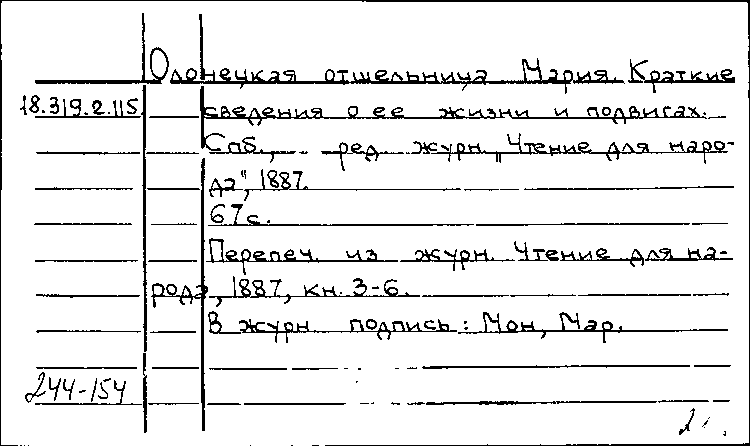 Олонецкая отшельница Мария. Краткие
18.319.2.115 сведения о ее жизни и подвигах.
Спб., ред. журн. „Чтение для наро-
да", 1887.
67 с.
Перепеч. из журн. Чтение для на-
рода, 1887, кн. 3-6.
В журн. подпись: Мон, Мар.
244-154